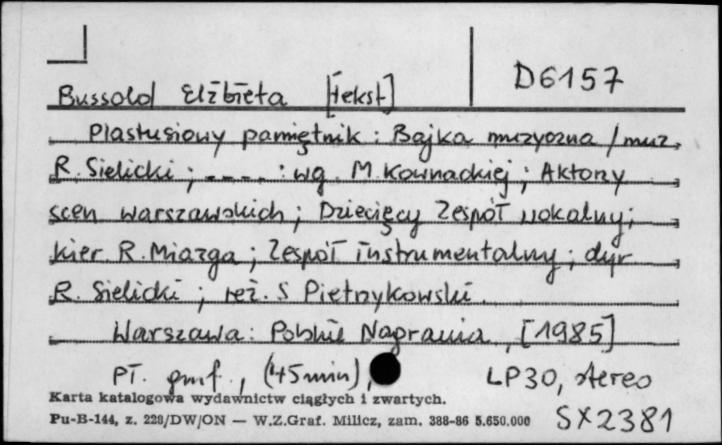 Bussold Elżbieta [tekst] D6157
Plastusiowy pamiętnik : Bajka muzyczna / muz.
R. Sielicki ; ---- : wg. M. Kownackiej ; Aktorzy
scen warszawskich ; Dziecięcy Zespół wokalny ;
kier. R. Miazga ; Zespół instrumentalny ; dyr
R. Sielicki ; reż. S Pietrzykowski.
Warszawa : Polskie Nagrania, [1985]
Pł. gmf., (45 min), LP30, stereo
Karta katalogowa wydawnictw ciągłych i zwartych.
Pu-B-144, z. 228/DW/ON — W.Z.Graf. Milicz, zam. 388-86 5.650.000 SX2381